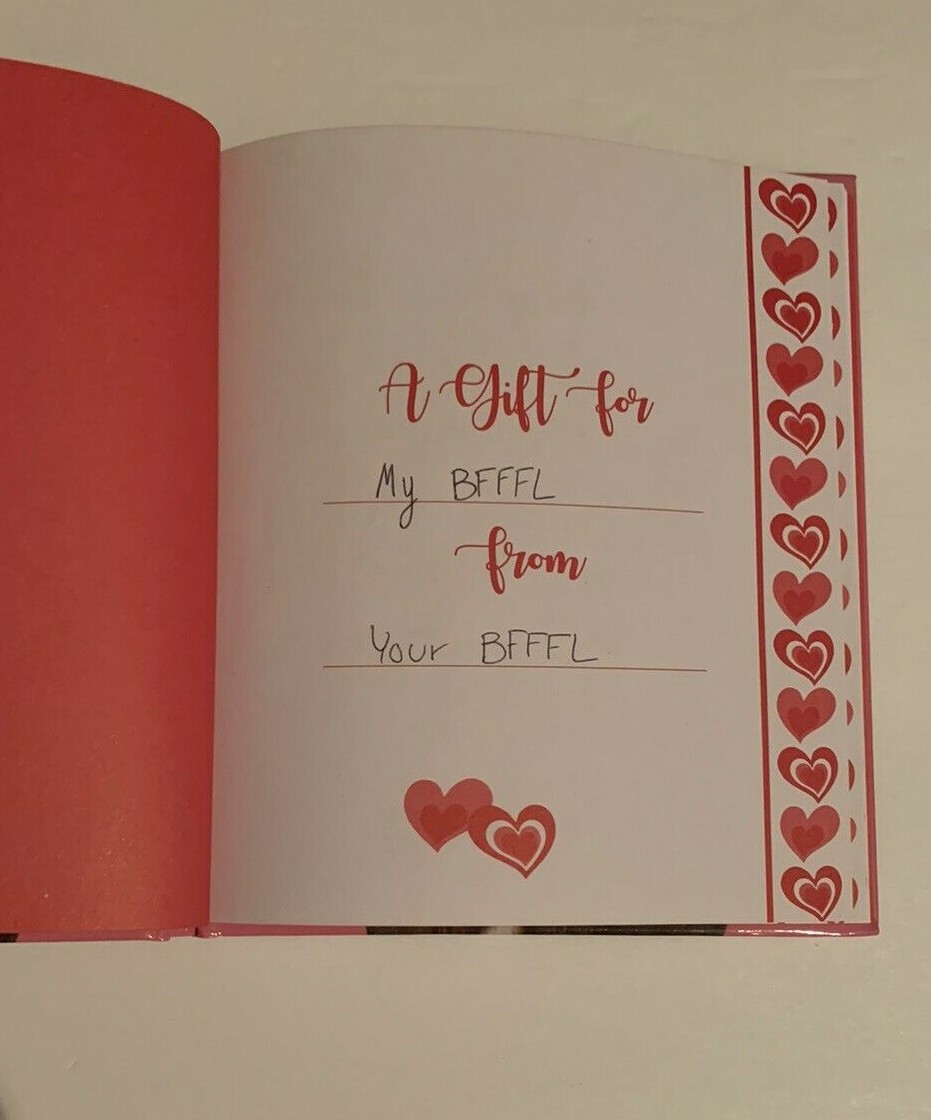 A Gift for
My BFFFL
from
Your BFFFL